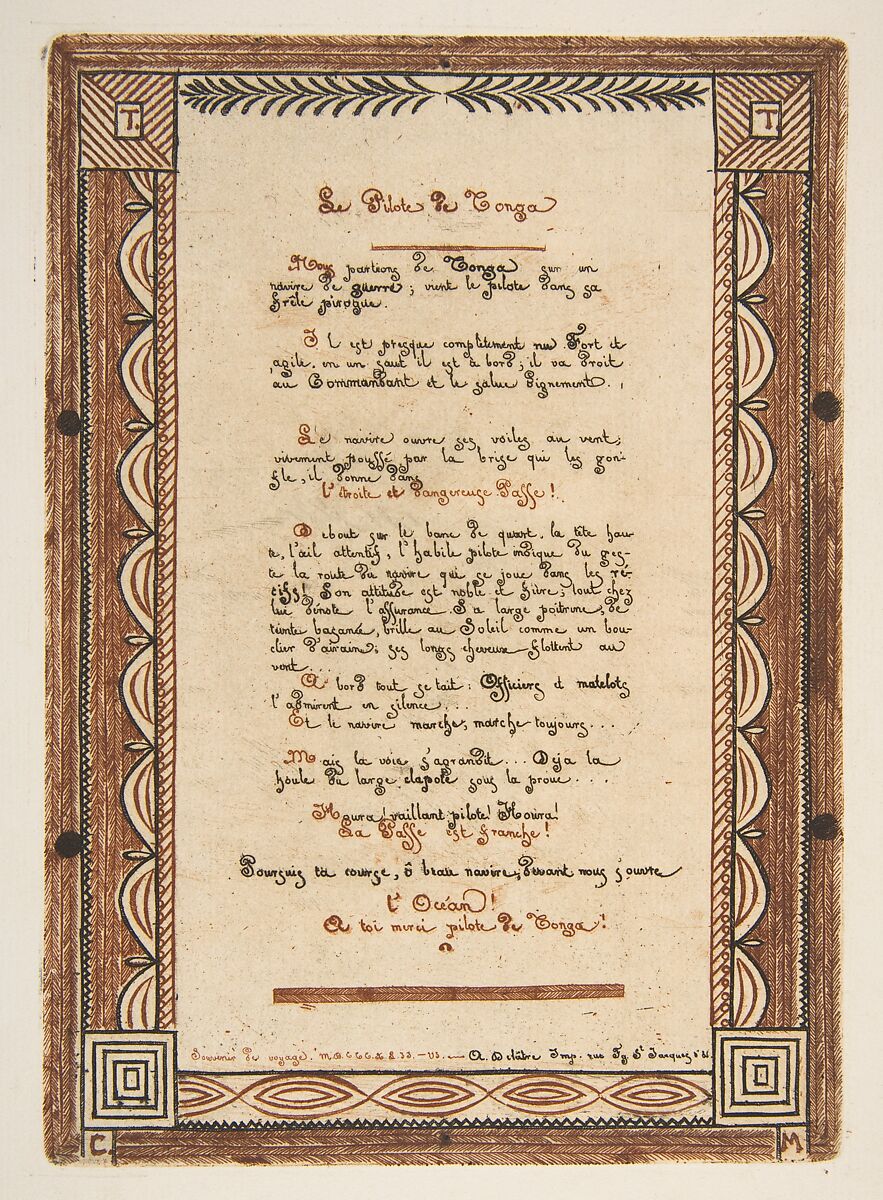 T. T
Le Pilote de Tonga
Nous partions de Tonga sur un
navire de guerre; vient le pilote dans sa
frêle pirogue.
Il est presque complètement nu. Fort et
agile, en un saut il est à bord; il va droit
au Commandant et le salue dignement.
Le navire ouvre ses voiles au vent;
vivement poussé par la brise qui les gon-
fle, il donne dans
l'étroite et dangereuse Passe!
Debout sur le banc de quart, la tête hau-
te, l'œil attentif, l'habile pilote indique du ges-
te la route du navire qui se joue dans les ré-
cifs! Son attitude est noble et fière; tout chez
lui dénote l'assurance. Sa large poitrine, de
teinte bazanée, brille au Soleil comme un bou-
clier d'airain; ses longs cheveux flottent au
vent...
A bord tout se tait: Officiers et matelots
l'admirent en silence...
Et le navire marche, marche toujours...
Mais la voie s'agrandit... Déja la
houle du large clapote sous la proue....
Houra! vaillant pilote! Houra!
La Passe est franche!
Poursuis ta course, ô beau navire, Devant nous s'ouvre
l'Océan!
A toi merci pilote de Tonga!
Souvenir de voyage. A. Delâtre Imp. rue Fg. St Jacques
C. M